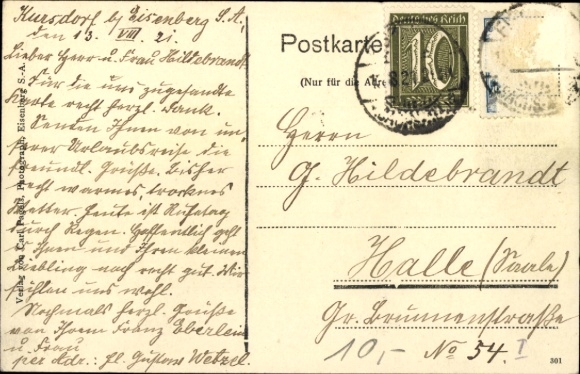 Kursdorf b/ Eisenberg S. A.,
den 13. VIII. 21.
Lieber Herr u. Frau Hildebrandt
Für die uns zugesandte
Karte recht herzl. Dank.
Senden Ihnen von un-
serer Urlaubsreise die
freundl. Grüße. Bisher
recht warmes, trocknes
Wetter. Heute ist Ruhetag
durch Regen. Hoffentlich geht
es Ihnen und Ihren kleinen
Liebling noch recht gut. Wir
fühlen uns wohl.
Nochmals herzl. Grüße
von Ihrem Franz Eberlein
u. Frau
per Adr.: Hl. Gustav Wetzel.
Verlag von Carl Photograph, Eisenberg S.-A.
Postkarte
(Nur für die
Deutsches Reich
10
Herrn
G. Hildebrandt
Halle (Saale)
Gr. Brunnenstraße
No 54. I
10,-
301